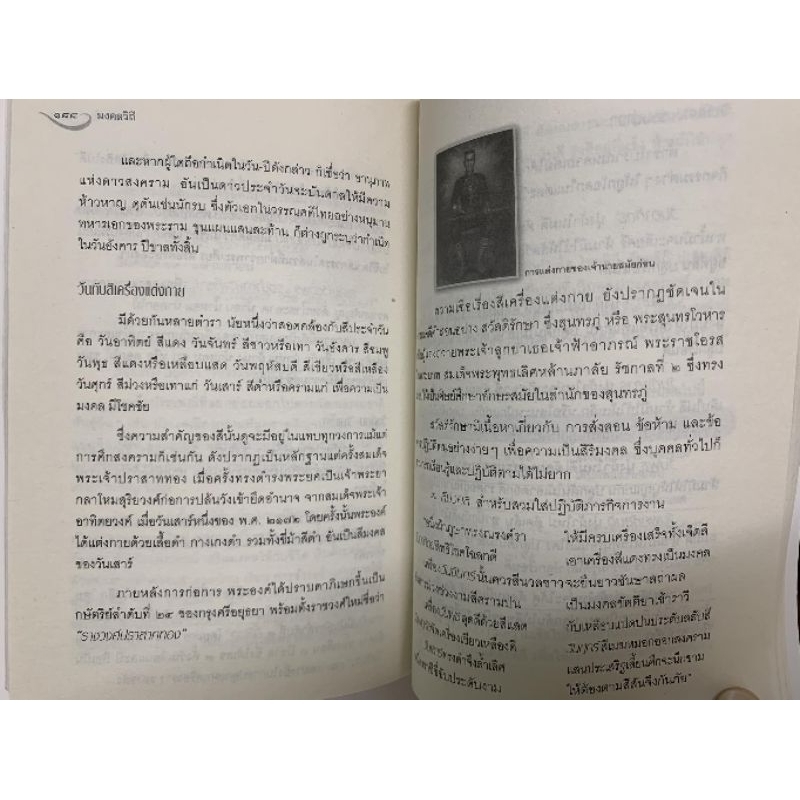 ๑๙๘ มงคลวิถี
และหากผู้ใดถือกำเนิดในวัน-ปีดังกล่าว ก็เชื่อว่า อานุภาพ
แห่งดาวสงคราม อันเป็นดาวประจำวันจะบันดาลให้มีความ
ห้าวหาญ ดุดันเช่นนักรบ ซึ่งตัวเอกในวรรณคดีไทยอย่างหนุมาน
ทหารเอกของพระราม ขุนแผนแสนสะท้าน ก็ต่างถูกระบุว่ากำเนิด
ในวันอังคาร ปีขาลทั้งสิ้น
วันกับสีเครื่องแต่งกาย
มีด้วยกันหลายตำรา นัยหนึ่งว่าสอดคล้องกับสีประจำวัน
คือ วันอาทิตย์ สีแดง วันจันทร์ สีขาวหรือเทา วันอังคาร สีชมพู
วันพุธ สีแดงหรือเหลือบแสด วันพฤหัสบดี สีเขียวหรือสีเหลือง
วันศุกร์ สีม่วงหรือเทาแก่ วันเสาร์ สีดำหรือครามแก่ เพื่อความเป็น
มงคล มีโชคชัย
ซึ่งความสำคัญของสีนั้นดูจะมีอยู่ในแทบทุกวงการแม้แต่
การศึกสงครามก็เช่นกัน ดังปรากฏเป็นหลักฐานแต่ครั้งสมเด็จ
พระเจ้าปราสาททอง เมื่อครั้งทรงดำรงพระยศเป็นเจ้าพระยา
กลาโหมสุริยวงศ์ก่อการปล้นวังเข้ายึดอำนาจ จากสมเด็จพระเจ้า
อาทิตยวงศ์ เมื่อวันเสาร์หนึ่งของ พ.ศ. ๒๑๗๒ โดยครั้งนั้นพระองค์
ได้แต่งกายด้วยเสื้อดำ กางเกงดำ รวมทั้งขี่ม้าสีดำ อันเป็นสีมงคล
ของวันเสาร์
ภายหลังการก่อการ พระองค์ได้ปราบดาภิเษกขึ้นเป็น
กษัตริย์ลำดับที่ ๒๔ ของกรุงศรีอยุธยา พร้อมตั้งราชวงศ์ใหม่ชื่อว่า
"ราชวงศ์ปราสาททอง"
การแต่งกายของเจ้านายสมัยก่อน
ความเชื่อเรื่องสีเครื่องแต่งกาย ยังปรากฏชัดเจนใน
สอนอย่าง สวัสดิรักษา ซึ่งสุนทรภู่ หรือ พระสุนทรโวหาร
ถวายพระเจ้าลูกยาเธอเจ้าฟ้าอาภรณ์ พระราชโอรส
สมเด็จพระพุทธเลิศหล้านภาลัย รัชกาลที่ ๒ ซึ่งทรง
เป็นศิษย์ศึกษาอักษรสมัยในสำนักของสุนทรภู่
สวัสดิรักษามีเนื้อหาเกี่ยวกับ การสั่งสอน ข้อห้าม และข้อ
ปฏิบัติตนอย่างง่ายๆ เพื่อความเป็นสิริมงคล ซึ่งบุคคลทั่วไปก็
เรียนรู้และปฏิบัติตามได้ไม่ยาก
สำหรับสวมใส่ปฏิบัติภารกิจการงาน
ทรงณรงค์รา ให้มีครบเครื่องเสร็จทั้งเจ็ดสี
สิทธิโชคโฉลกดี เอาเครื่องสีแดงทรงเป็นมงคล
นั้นควรสีนวลขาว จะยืนยาวชันษาสถาผล
ช่วงงามสีครามปน เป็นมงคลขัตติยาเข้าราวี
สุดดีด้วยสีแสด กับเหลือบแปดปนประดับสลับสี
เครื่องเขียวเหลืองดี วันศุกร์สีเมฆหมอกออกสงคราม
ทรงดำจึ่งล้ำเลิศ แสนประเสริฐเสี้ยนศึกจะนึกขาม
ขี่ขับประดับงาม ให้ต้องตามสีสันจึ่งกันภัย"